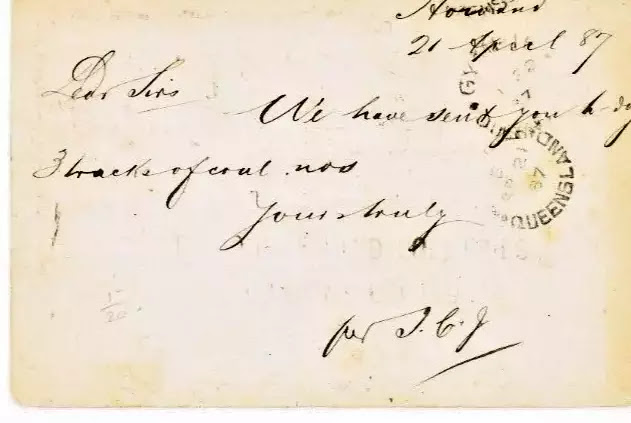 21 April 87
Dear Sirs
We have sent you to-day
3 trucks of coal. nos
Yours truly
per J. C. J
QUEENSLAND
1/20